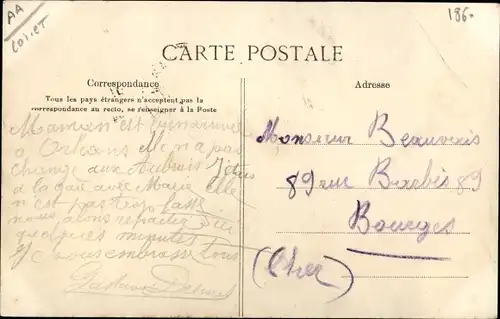 AA
186.
CARTE POSTALE
Correspondance
Tous les pays étrangers n'acceptent pas la
correspondance au recto, se renseigner à la Poste
Maman est bien arrivée
a Orleans Elle n a pas
change aux Aubrais J etais
a la gare avec Marie elle
n est pas trop
nous alons repartir
quelques minutes
Je vous embrasse tous
Adresse
Monsieur Beauvais
89 rue Barbès 89
Bourges
(Cher)